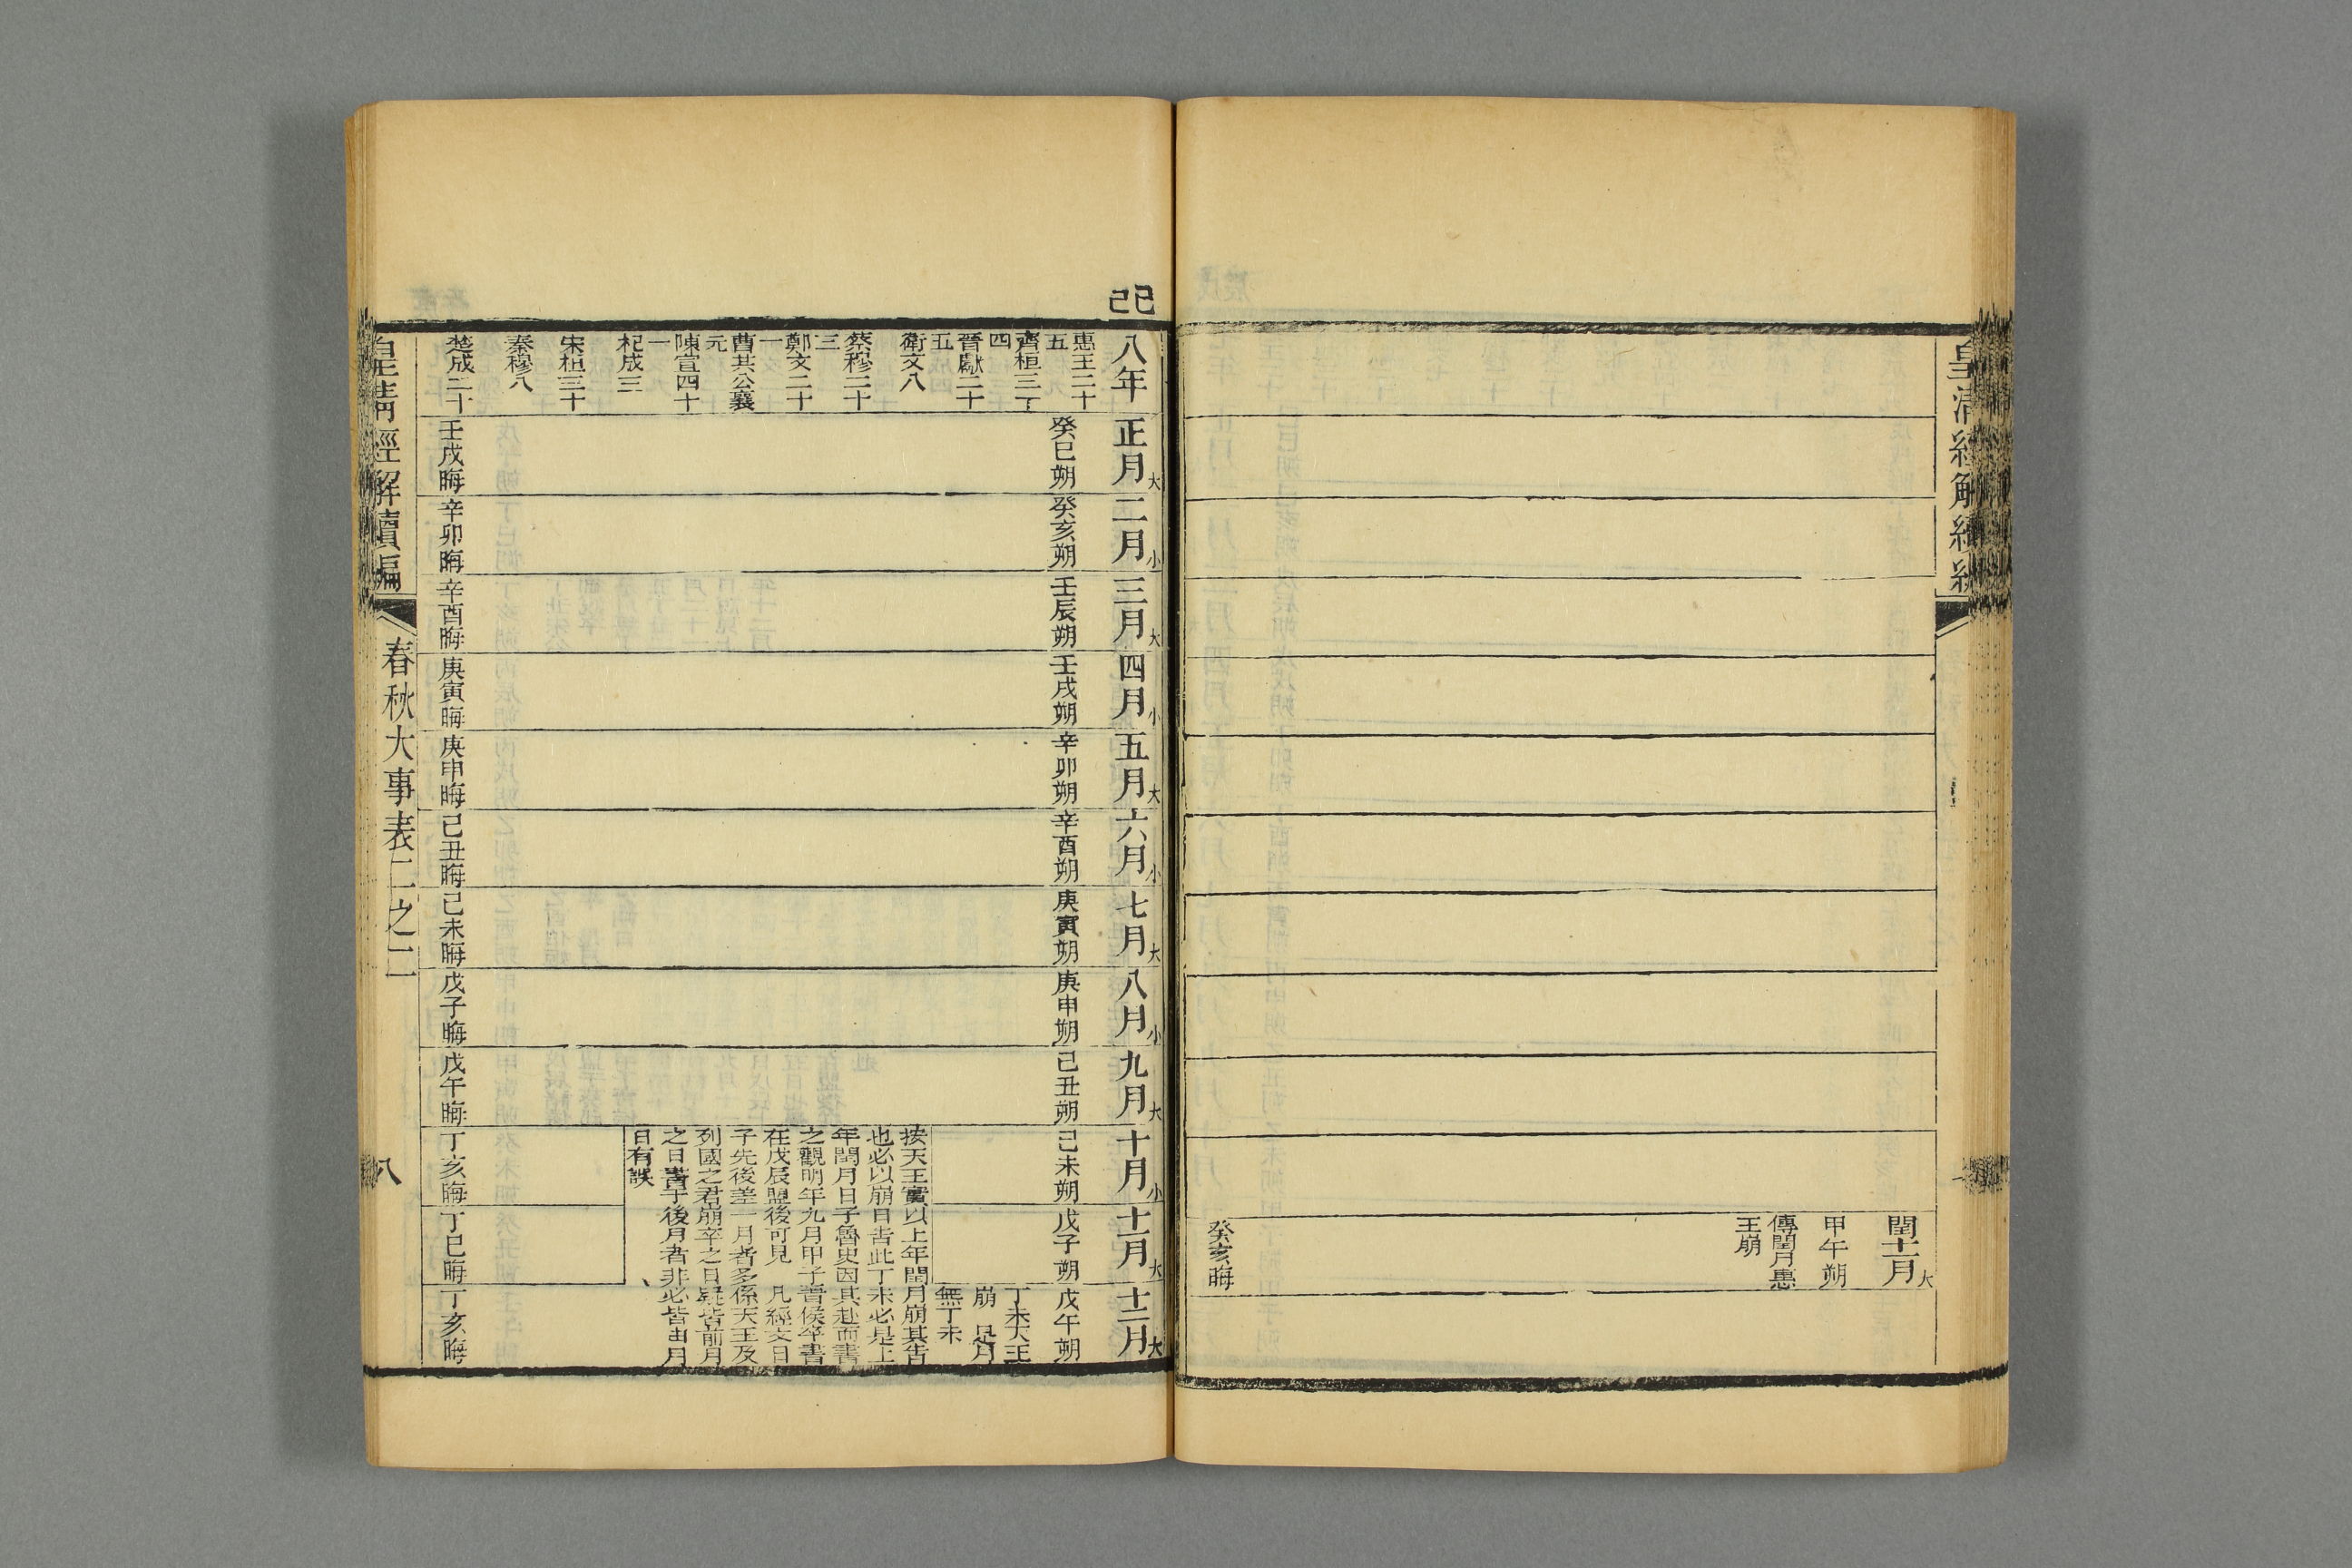 皇清經解續編
閏十二月大
甲午朔
傳閏月惠
王崩
癸亥晦
己巳
八年
惠王二十
五
齊桓三十
四
晉獻二十
五
衛文八
蔡穆二十
三
鄭文二十
一
曹共公襄
元
陳宣四十
一
杞成三
宋桓三十
秦穆八
楚成二十
正月大
癸巳朔
壬戌晦
二月小
癸亥朔
辛卯晦
三月大
壬辰朔
辛酉晦
四月小
壬戌朔
庚寅晦
五月大
辛卯朔
庚申晦
六月小
辛酉朔
己丑晦
七月大
庚寅朔
己未晦
八月小
庚申朔
戊子晦
九月大
己丑朔
戊午晦
十月小
己未朔
丁亥晦
十一月大
戊子朔
丁巳晦
十二月大
戊午朔
丁未天王
崩 是月
無丁未
按天王實以上年閏月崩其告
也必以崩日告此丁未必是上
年閏月日子魯史因其赴而書
之觀明年九月甲子晉侯卒書
在戊辰盟後可見 凡經文日
子先後差一月者多係天王及
列國之君崩卒之日疑皆前月
之日書于後月者非必皆由月
日有誤
丁亥晦
皇清經解續編
春秋大事表二之二
八